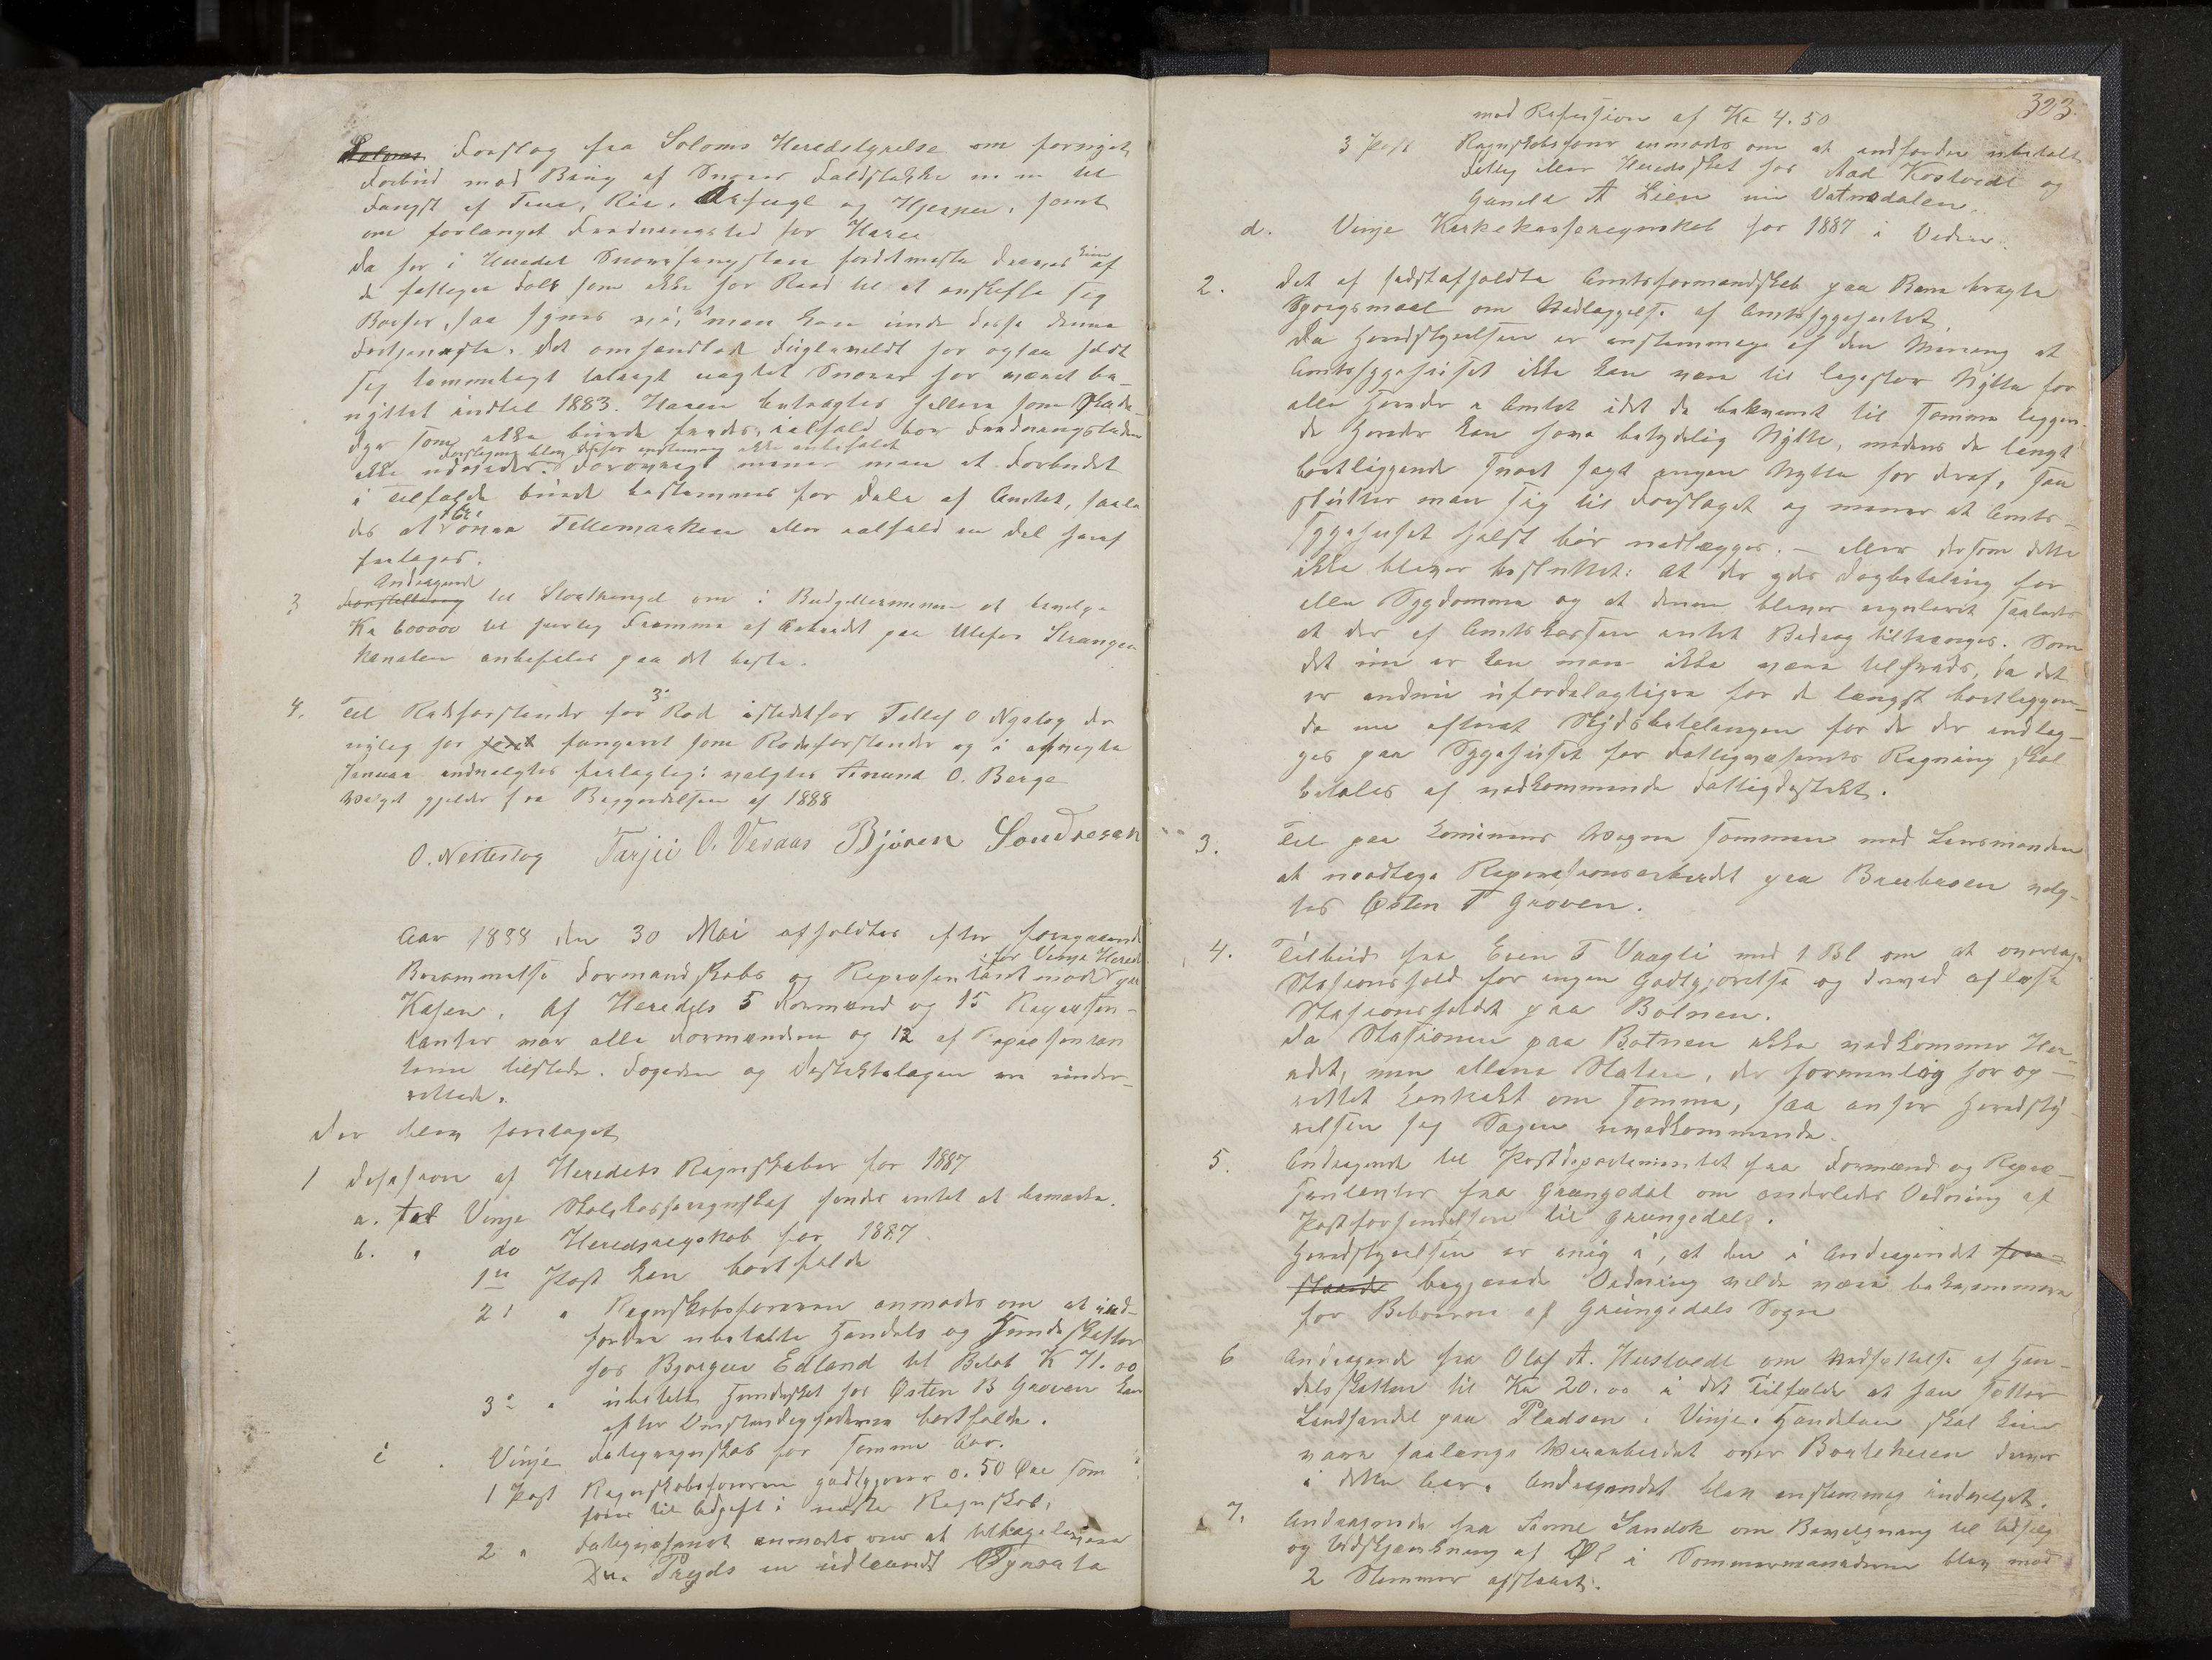 Forslag fra Soloms Heredstyrelse om fornyet
Forbud mod Brug af Snarer Faldstokke m m til
Fangst af Tiur, Rør, Aarfugl og Hjerper, samt
om forlænget Fredningstid for Harer
Da her i Heredet Snarefangsten fordetmeste drives kun af
de fattigere Folk som ikke har Raad til at anskaffe sig
Børser, saa synes vi, at man kan unde disse denne
Fortjeneste. Det omhandlede Fuglevildt har ogsaa holdt
sig temmeligt talrigt uagtet Snarer har været be-
nyttet indtil 1883. Haren betragtes hellere som Skade-
dyr som ikke burde fredes, ialfald bør Fredningstiden
Forslagene blev derfor enstemmig ikke anbefalet
ikke udvides. Forøvrigt mener man at Forbudet
i Tilfælde burde bestemmes for Dele af Amtet, saale
des at øvre Tellemarken eller ialfald en Del heraf
fritages.
Andragende
3 til Storthinget om i Budgetterminen at bevilge
Kr 600000 til hurtig Fremme af Arbeidet paa Ulefos Strængen
Kanalen anbefales paa det beste.
4. Til Rodeforstander for 3die Rod istedetfor Tellef O Nyslog der
nylig har fungeret som Rodeforstander og i afvigte
Januar indvalgtes ... valgtes Aanund O. Berge
Valget gjelder fra Begyndelsen af 1888
O. Nesteslog Tarjei O. Vesaas Bjørn Sondresen
Aar 1888 den 30 Mai afholdtes efter foregaaende
for Vinje Hered
Berammelse Formandskabs og Repræsentantmøde paa
Kasen. Af Heredets 5 Formænd og 15 Repræsen-
tanter var alle Formændene og 12 af Repræsentan
terne tilstede. Fogden og Distriktslægen var under-
rettede.
Der blev foretaget
1 Desision af Heredets Regnskaber for 1887
a. Vinje Skolekasseregnskab fandtes intet at bemærke.
b. " do Heredsregnskab for 1887
1ste Post kan bortfalde
2den " Regnskabsføreren anmodes om at ind-
fordre ubetalte Handels og Hundeskatter
hos Bjørgus Edland til Beløb K 71.00
3die " ubetalt Hundeskat hos Østen B Groven kan
efter Omstændighederne bortfalde.
c . Vinje Fatigregnskab for samme Aar.
1 Post Regnskabsføreren godtgjøres 0.50 Øre som
føres til Udgift i næste Regnskab,
2 " Fatigvæsenet anmodes om at tilbagelevere
Dr. Preyds en udlaant Sprøita
323
mod Refusion af Kr 4.50
3 Post Regnskabsfører anmodes om at indfordre ubetalt
Fattig eller Heredsskat hos Aad Kostvedt og
Gunild A Lien nu Vatnedalen.
d. Vinje Kirkekasseregnskab for 1887 i Orden.
2. Det af sidstafholdte Amtsformandskab paa Bane bragte
Spørgsmaal om Nedlæggelse af Amtssygehuset.
Da Heredstyrelsen er enstemmige af den Mening at
Amtssygehuset ikke kan være til ligestor Nytte for
alle Hereder i Amtet idet de bekvemt til samme liggen-
de Hereder kan have betydelig Nytte, medens de langt
bortliggende snart sagt ingen Nytte har deraf, saa
slutter man sig til Forslaget og mener at Amts-
sygehuset helst bør nedlægges. - Eller dersom dette
ikke bliver besluttet: at der ydes Dagbetaling for
alle Sygdomme og at denne bliver reguleret saaledes
at der af Amtskassen intet Bidrag tiltrænges. Som
det nu er kan man ikke være tilfreds, da det
er endnu ufordelagtigere for de længst bortliggen-
de nu efterat Skydsbetalingen for de der indlæg-
ges paa Sygehuset for Fattigvæsenets Regning skal
betales af vedkommende Fattigdistrikt.
3. Til paa Kommunens Vegne sammen med Lensmanden
at modtage Reparasionsarbeidet paa Brubroen valg-
tes Østen T Groven.
4. Tilbud fra Even T Vaagli med 1 Bl om at overtage
Stasjonshold for ingen Godtgjørelse og derved afløse
Stasjonsholdet paa Botnen.
Da Stasjonen paa Botnen ikke vedkommer Her-
edet, men allene Staten, der formentlig har op-
rettet Kontrakt om samme, saa anser Heredsty-
relsen sig Sagen uvedkommende.
5. Andragende til Postdepartementet fra Formænd og Repræ-
sentanter fra Grungedal om anderledes Ordning af
Postforsendelsen til Grungedal.
Heredstyrelsen er enig i, at den i Andragendet
begjærede Ordning vilde være bekvemmere
for Beboerne af Grungedals Sogn
6 Andragende fra Olaf A. Hustvedt om Nedsættelse af Han-
delsskatten til Kr 20.00 i det Tilfælde at han sætter
Landhandel paa Pladsen i Vinje. Handelen skal kun
vare saalænge Veiarbeidet over Bortehesen drives
i dette Aar. Andragendet blev enstemmig indvilget.
7. Andragende fra Anne Sandok om Bevilgning til Udsalg
og Udskjænkning af Øl i Sommermaanederne blev mod
2 Stemmer afslaaet.